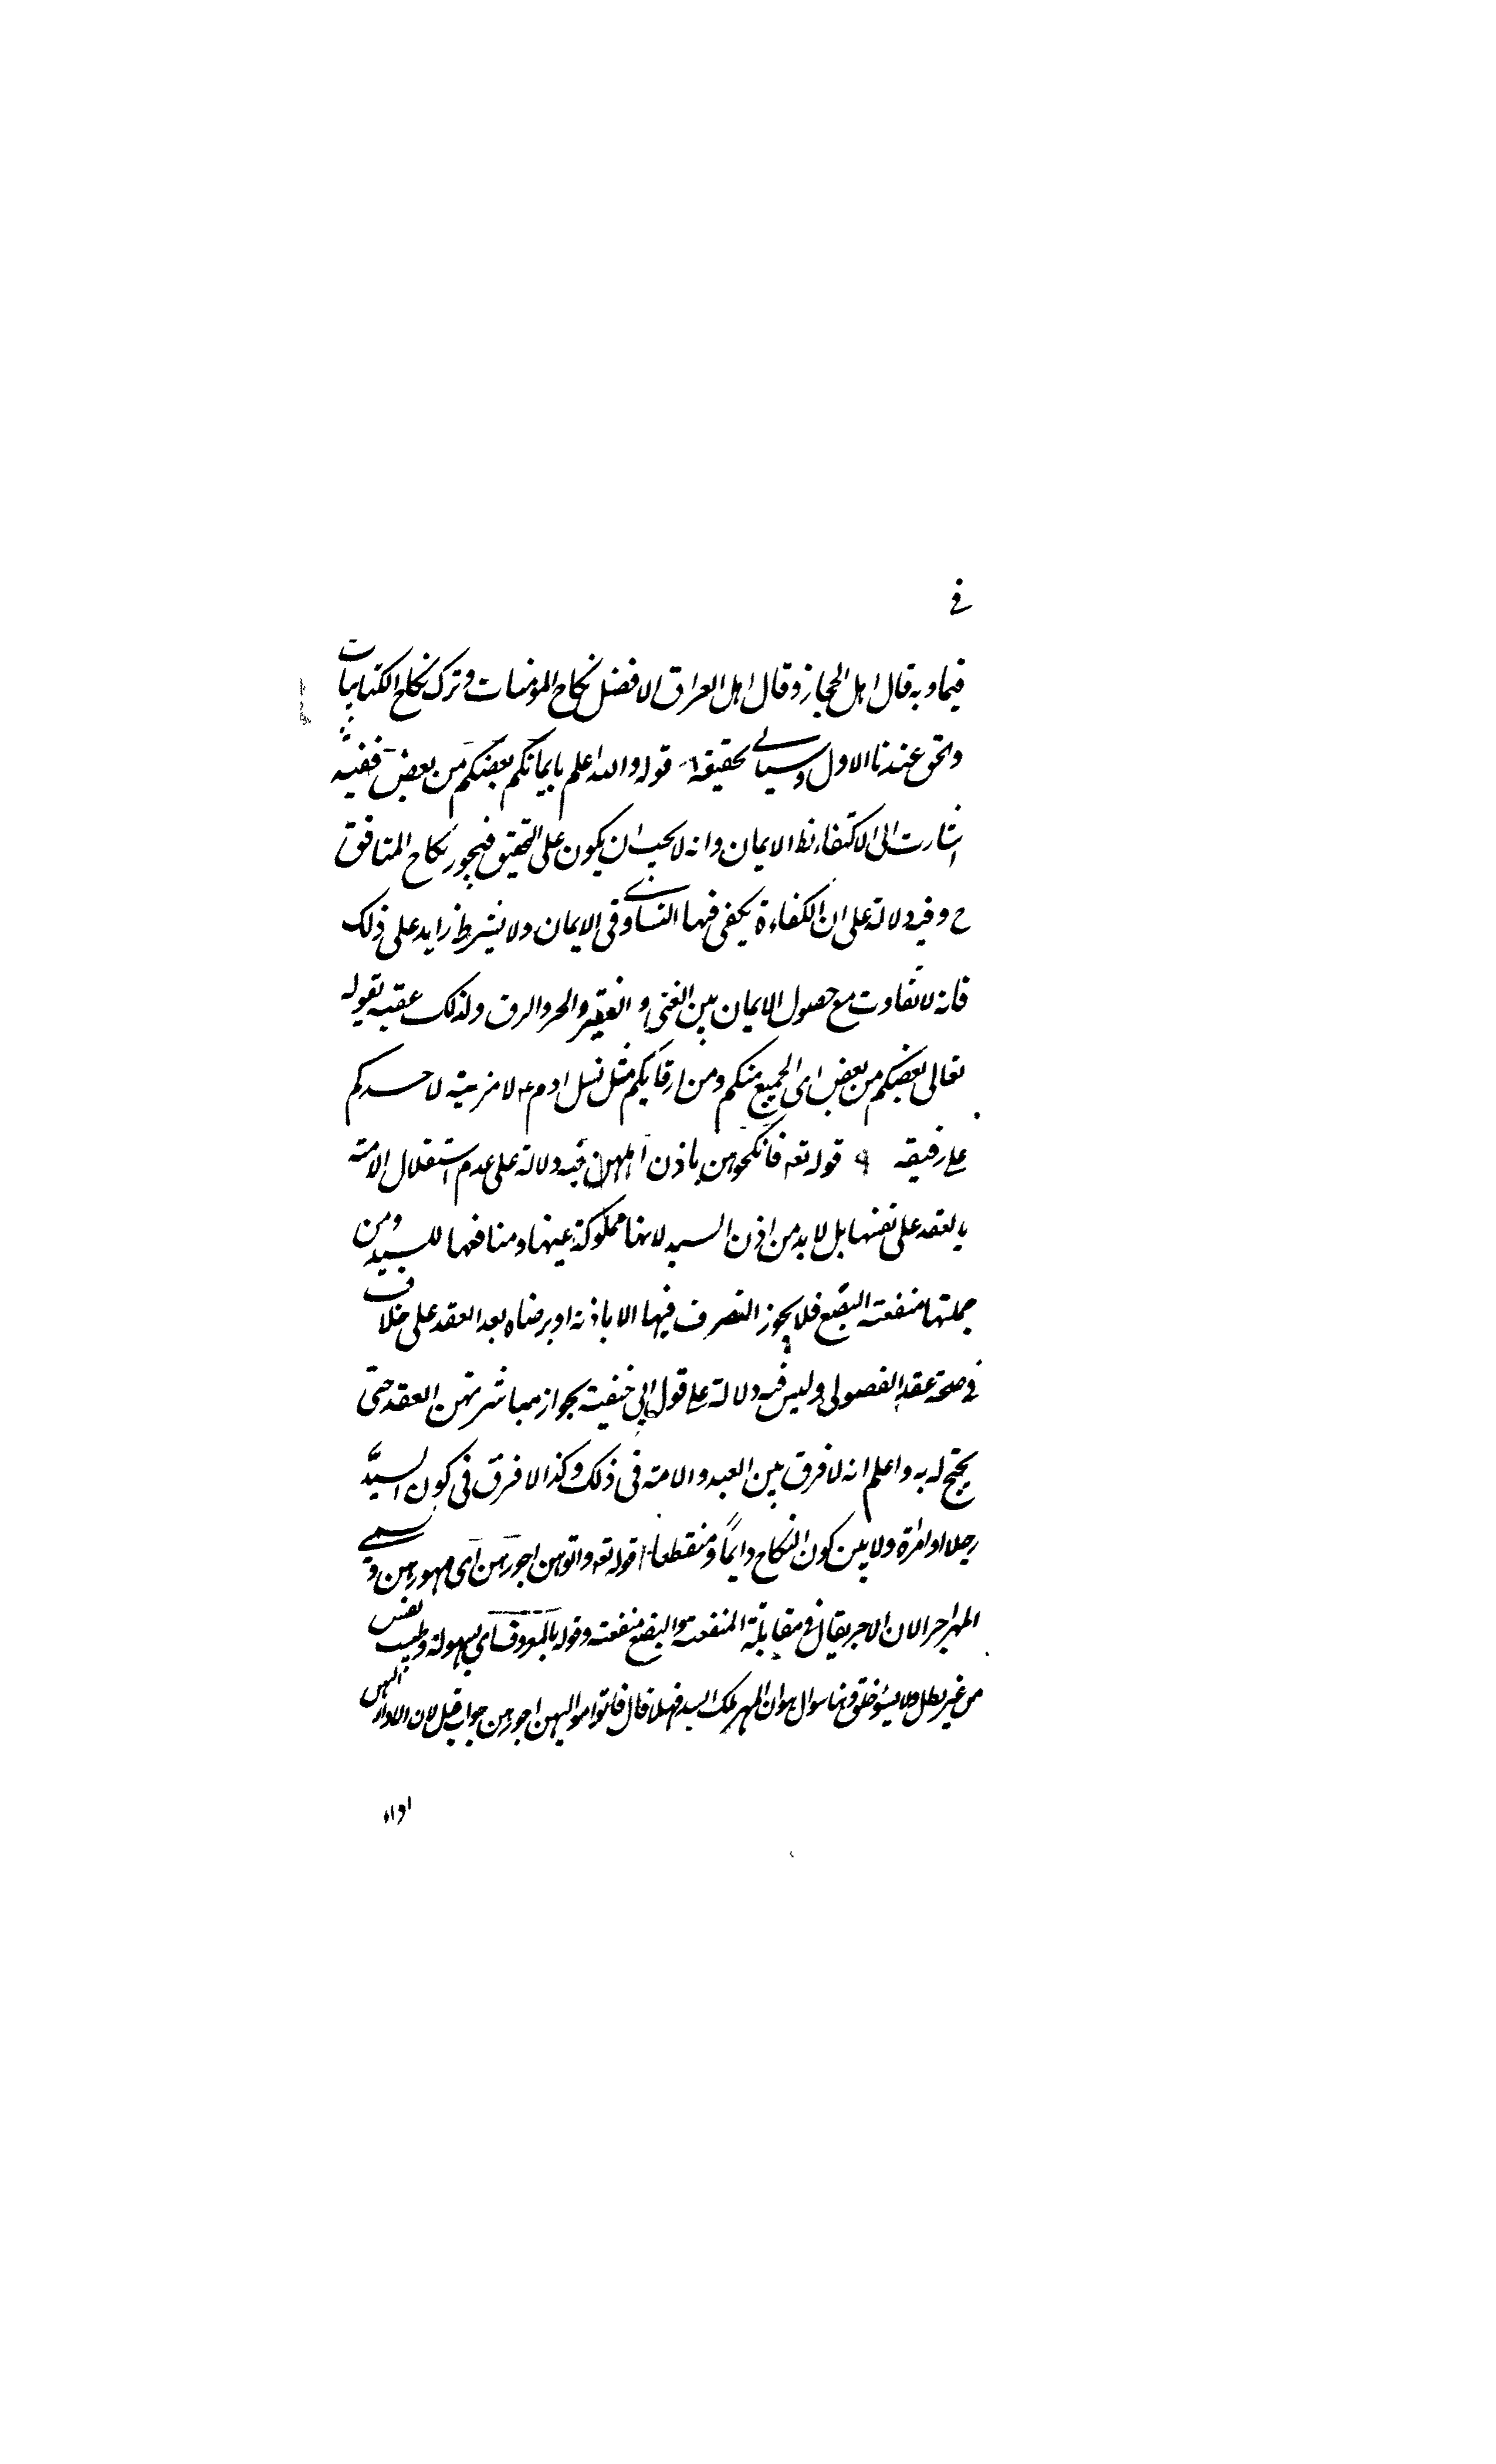 في
فيها وبه قال اهل الحجاز وقال اهل العراق الافضل نكاح المؤمنات وترك نكاح الكتابيات
والحق عندنا الاول وسياتي تحقيقه ٦ قوله والله اعلم بايمانكم بعضكم من بعض ففيه
اشارت الى الاكتفاء بظ الايمان وانه لا يجب ان يكون على التحقيق فيجوز نكاح المنافق
ح وفيه دلالة على ان الكفاءة يكفى فيها التساوى فى الايمان ولا يشترط زايد على ذلك
فانه لا تفاوت مع حصول الايمان بين الغنى والفقير والحر والرق ولذلك عقبه بقوله
تعالى بعضكم من بعض اى الجميع منكم ومن ارقائكم مثل نسل ادم ع لا مزية لاحدكم
على رقيقه ٩ قوله تعه فانكحوهن باذن اهلهن فيه دلالة على عدم استقلال الامة
بالعقد على نفسها بل لا بد من اذن السيد لانها مملوكة عينها ومنافعها للسيد ومن
جملتها منفعة البضع فلا يجوز التصرف فيها الا باذنه او برضاه بعد العقد على خلاف
في صحة عقد الفضولى وليس فيه دلالة على قول ابي حنيفة بجواز مباشرتهن العقد حتى
يحتج له به واعلم انه لا فرق بين العبد والامة فى ذلك وكذا لا فرق فى كون السيد
رجلا او امراة ولا بين كون النكاح دايماً ومنقطعا قوله تعه واتوهن اجورهن اى مهورهن وسمى
المهر اجرا لان الاجر يقال فى مقابلة المنفعة والبضع منفعة وقوله بالمعروف اى بسهولة وطيب نفس
من غير مطل ولا بسؤ خلق وهنا سوال هو ان المهر ملك السيد فهلا قال فاتوا مواليهن اجورهن جواب قيل لان الاداء اليهن
اداء